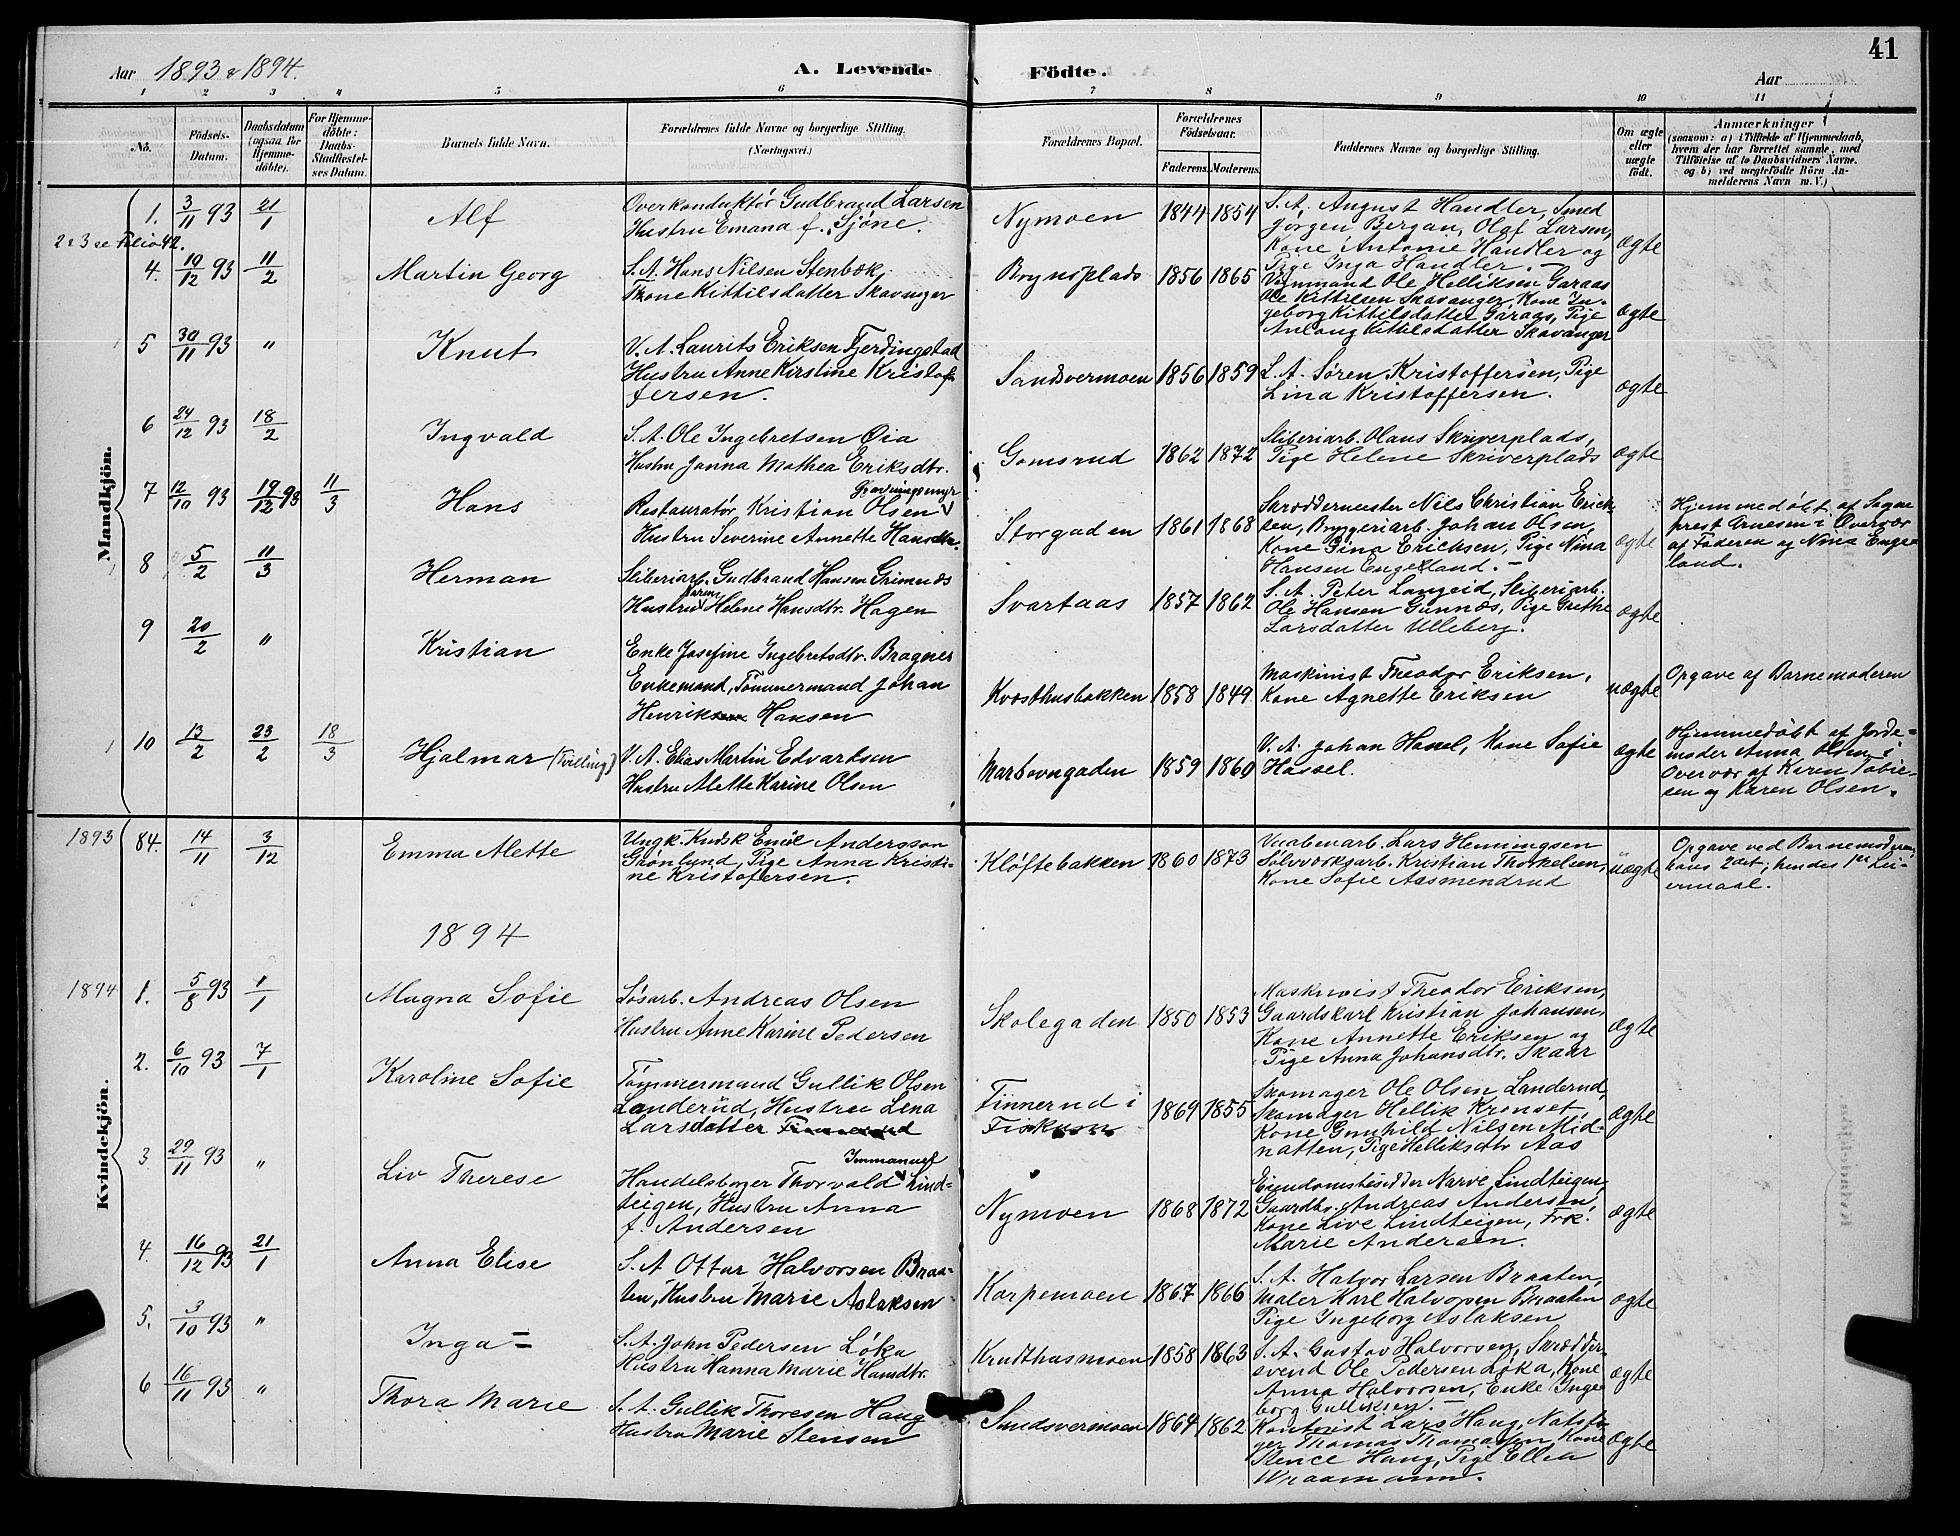 41
Aar 1893 & 1894.
A. Levende
Födte.
Aar
1 2 3 4 5 6 7 8 9 10 11
No.
Födsels-
Datum.
Daabsdatum
(ogsaa for
Hjemme-
döbte).
For Hjemme-
döbte:
Daabs-
Stadfæstel-
ses Datum.
Barnets fulde Navn.
Forældrenes fulde Navne og borgerlige Stilling.
(Næringsvei.)
Forældrenes Bopæl.
Forældrenes
Födselsaar.
Faderens. Moderens.
Faddernes Navne og borgerlige Stilling.
Om ægte
eller
uægte
födt.
Anmærkninger
(saasom: a) i Tilfælde af Hjemmedaab,
hvem der har forrettet samme, med
Tilföielse af to Daabsvidners Navne.
og b) ved uægtefödte Börn An-
melderens Navn m. V.)
Mandkjön.
1. 3/11 93 21/1
Alf
Overkonduktör Gudbrand Larsen
Hustru Emana f. Sjöne.
Nymoen 1844 1854
S. A. August Handler, Smed
Jörgen Bergan, Olaf Larsen,
Kone Antonie Handler og
Pige Inga Handler. —
ægte
2 & 3 se Folio 42.
4. 10/12 93 11/2
Martin Georg
S. A. Hans Nilsen Stenbæk,
Kone Kittilsdatter Skavanger
Brynsplads 1856 1865
Ole Helliksen Garaas
Ole Kittilsen Skavanger, Kone In-
geborg Kittilsdatter Garaas, Pige
Anlaug Kittilsdatter Skavanger
ægte
5 30/11 93 "
Knut
V. A. Laurits Eriksen Fjerdingstad
Hustru Anne Kirstine Kristof
fersen.
Sandsvermoen 1856 1859
S. A. Sören Kristoffersen, Pige
Lina Kristoffersen.
ægte
6 24/12 93 18/2
Ingvald
S. A. Ole Ingebretsen Öia
Hustru Janna Mathea Eriksdtr.
Gomsrud 1862 1872
Sliberiarb. Olaus Skriverplads,
Pige Helene Skriverplads
ægte
7 12/10 93 19/12 93 11/3
Hans
Restauratör Kristian Olsen
Hustru Severine Annette Hansdtr.
Storgaden 1861 1868
Skræddermester Nils Christian Erick-
sen, Bryggeriarb. Johan Olsen,
Kone Gina Ericksen, Pige Nina
Hansen Engelland. —
ægte
Hjemmedöbt af Sogne
prest Arnesen i Overvær
af Faderen og Nina Enge-
land.
8 5/2 11/3
Herman
Sliberiarb. Gudbrand Hansen Grimnæs
Hustru Karen Helene Hansdtr. Hagen
Svartaas 1857 1862
S. A. Peter Langeid, Sliberiarb.
Ole Hansen Gunnæs, Pige Grethe
Larsdatter Ulleberg.
ægte
9 20/2 "
Kristian
Enke Josefine Ingebretsdtr. Bragnes
Enkemand, Tömmermand Johan
Henriksen Hansen
Kvæsthusbakken 1858 1849
Maskinist Theodor Eriksen,
Kone Agnette Eriksen
uægte
Opgave af Barnemoderen
10 13/2 23/2 18/3
Hjalmar (Tvilling)
V. A. Elias Martin Edvardsen
Hustru Alette Karine Olsen
Marbovngaden 1859 1860
V. A. Johan Hassel, Kone Sofie
Hassel.
ægte
Hjemmedöbt af Jorde-
moder Anna Olsen i
Overvær af Karen Tobie-
sen og Karen Olsen.
Kvindekjön.
1893 84. 14/11 3/12
Emma Alette
Ungk. Kudsk Emil Andersson
Grönlund, Pige Anna Kristi-
ne Kristofersen.
Klöftebakken 1860 1873
Vaabenarb. Lars Henningsen
Sölvværksarb. Kristian Thorkelsen,
Kone Sofie Aasmendrud
uægte
Opgave ved Barnemoderen,
hans 2det, hendes 1ste Lei-
ermaal.
1894
1894 1. 5/8 93 1/1
Magna Sofie
Lösarb. Andreas Olsen
Hustru Anne Karine Pedersen
Skolegaden 1850 1853
Maskinist Theodor Eriksen,
Gaardskarl Kristian Johansen,
Kone Annette Eriksen og
Pige Anna Johansdtr. Skaar
ægte
2. 6/10 93 7/1
Karoline Sofie
Tömmermand Gullik Olsen
Landerud, Hustru Lena
Larsdatter
Finnerud i
Fiskum 1869 1855
Skomager Ole Olsen Landerud,
Skomager Hellik Kronset,
Kone Gunhild Nilsen Mid-
natten, Pige Helliksdtr Aas
ægte
3 29/11 93 "
Liv Therese
Handelsborger Thorvald Immanuel Lind-
teigen, Hustru Anna
f. Andersen
Nymoen 1868 1872
Eiendomsbesidder Narve Lindteigen,
Gaardbr. Andreas Andersen,
Kone Live Lindteigen, Frk.
Marie Andersen.
ægte
4. 16/12 93 21/1
Anna Elise
S. A Ottar Halvorsen Braa-
ten, Hustru Marie Aslaksen
Korpemoen 1867 1866
S. A. Halvor Larsen Braaten,
Maler Karl Halvorsen Braaten
Pige Ingeborg Aslaksen
ægte
5. 3/10 93 "
Inga =
S. A. John Pedersen Löka
Hustru Hanna Marie Hansdtr.
Krudthusmoen 1858 1863
S. A. Gustav Halvorsen, Skrædder-
svend Ole Pedersen Löka, Kone
Anna Halvorsen, Enke Inge-
borg Gulliksen. —
ægte
6 16/11 93 "
Thora Marie
S. A. Gullik Thoresen Haug
Hustru Marie Stensen
Sandsvermoen 1864 1862
Kontorist Lars Haug,
Thomas Thomassen, Kone
Stence Haug, Pige Ellen
ægte